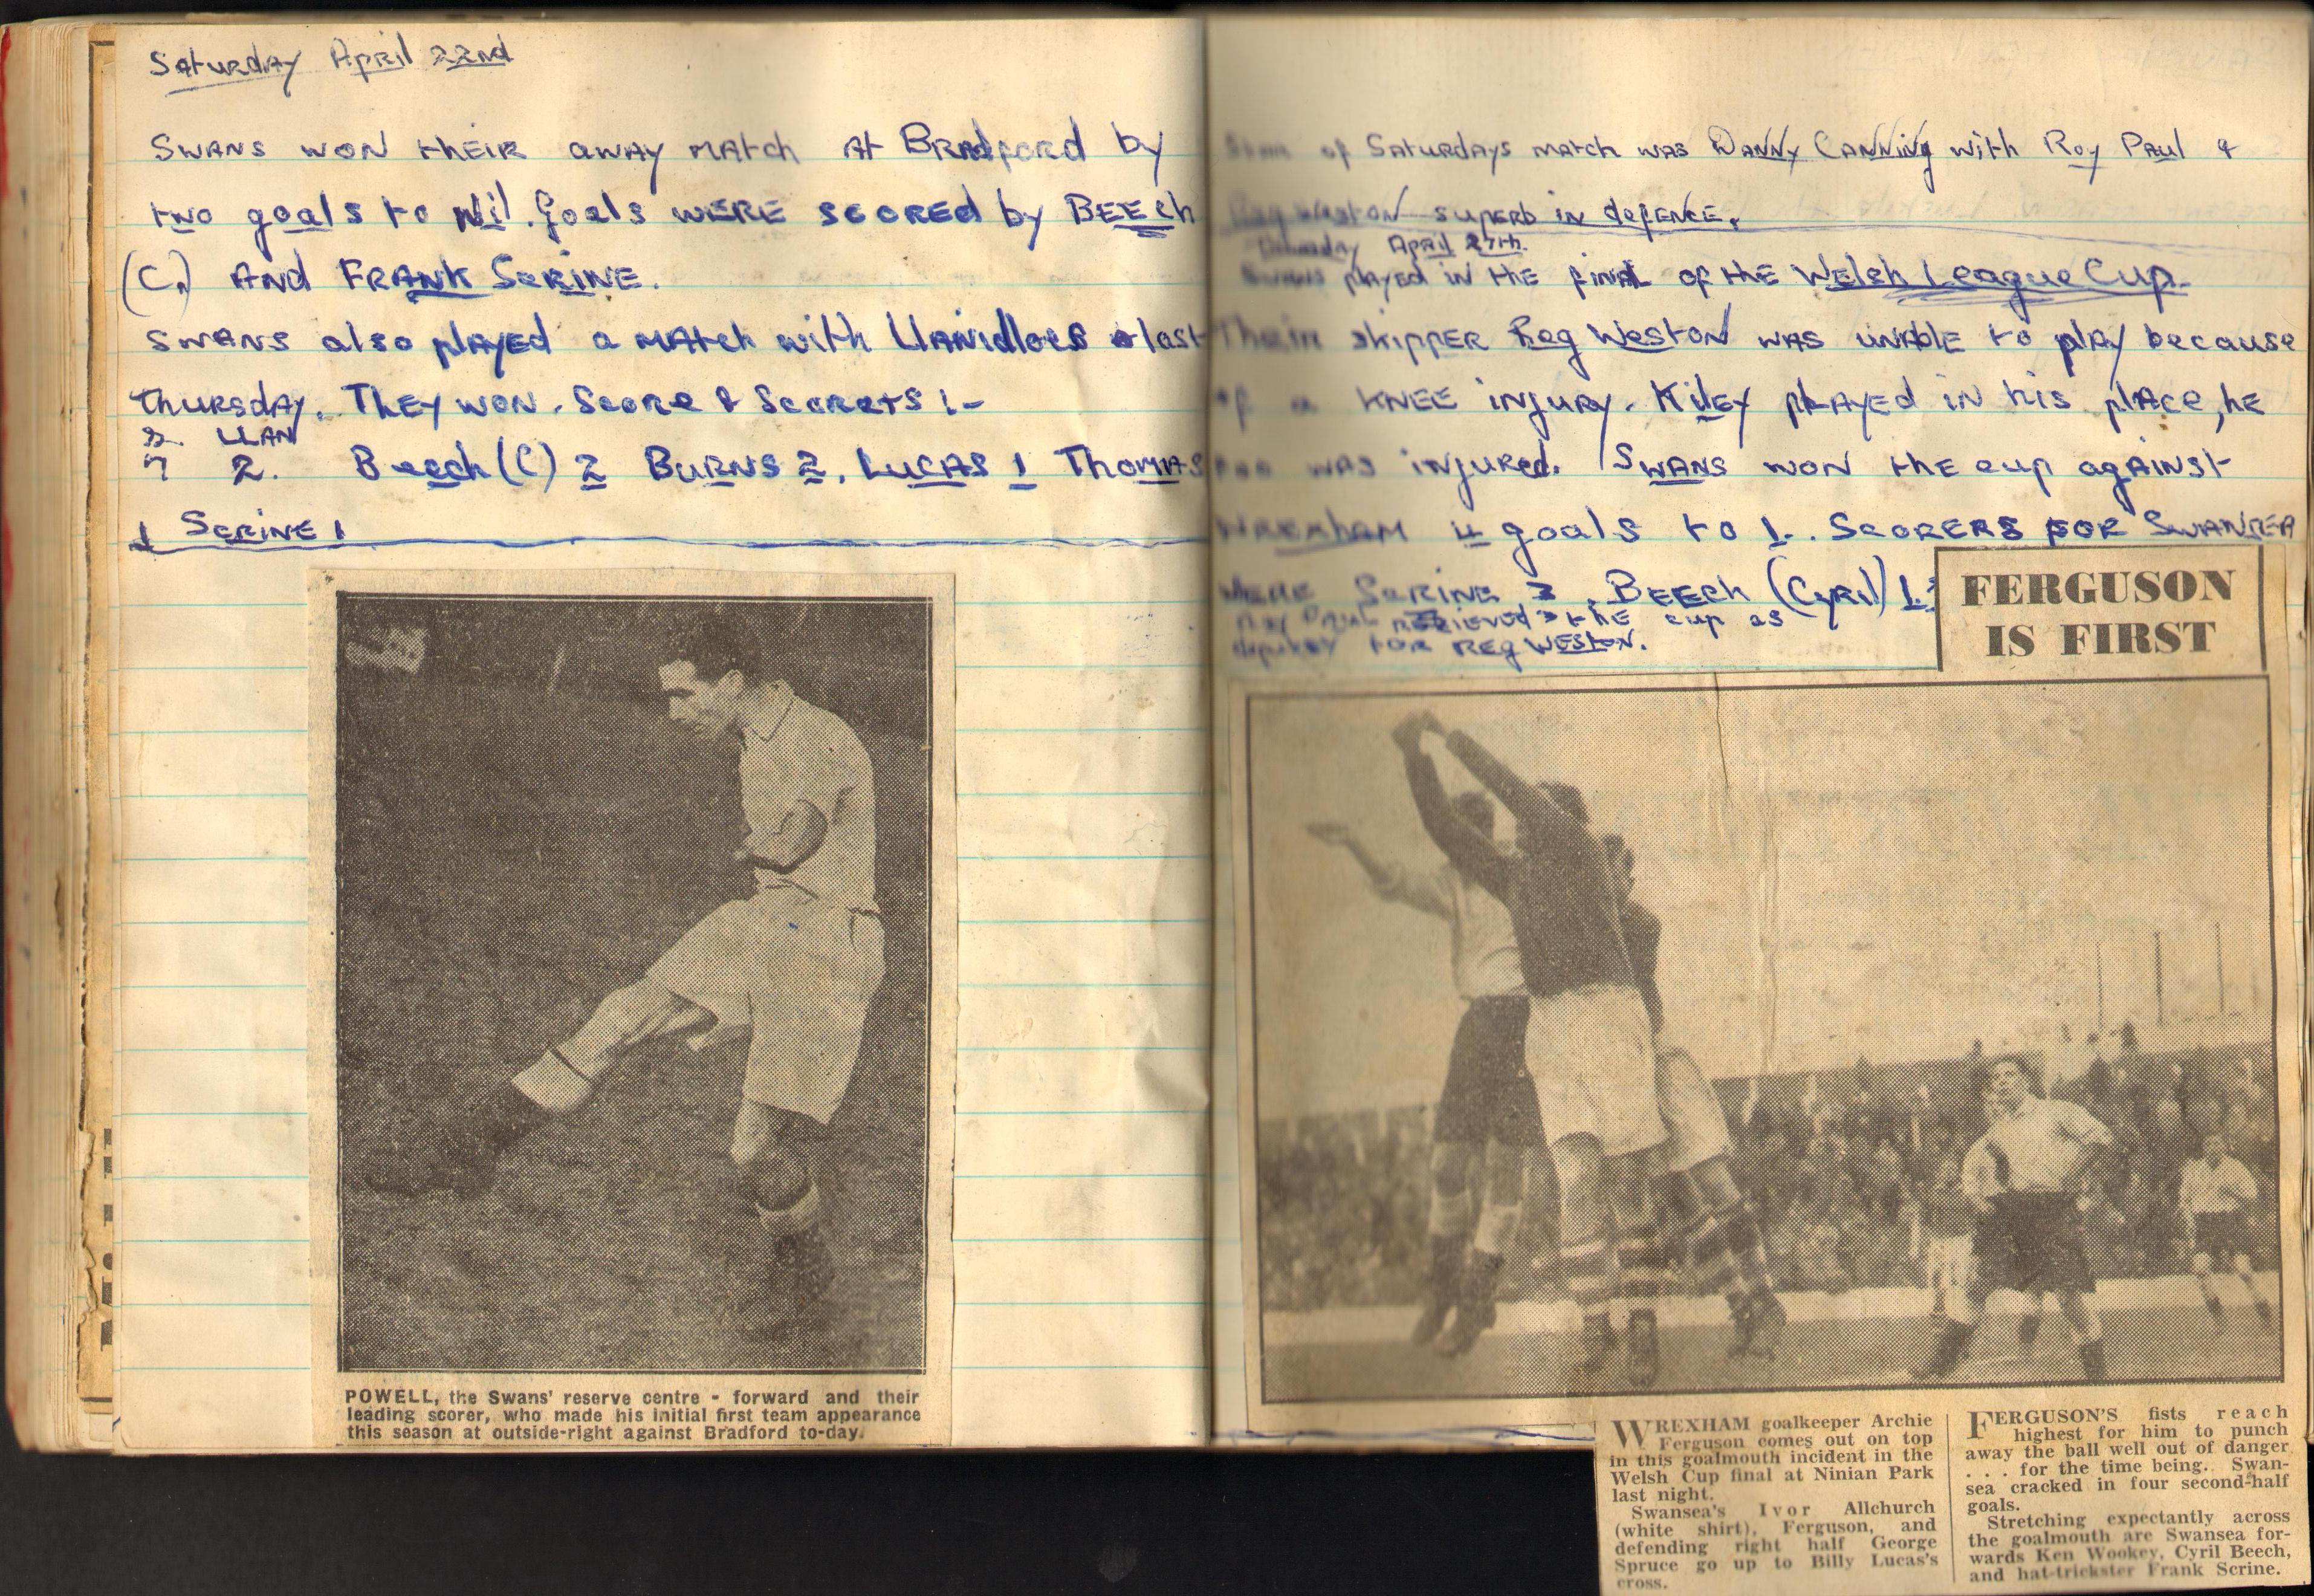 Saturday April 22nd
Swans won their away match at Bradford by
two goals to Nil. Goals were scored by Beech
(C.) and Frank Scrine.
Swans also played a match with Llanidloes last
Thursday. They won. Score & Scorers :-
S. LLAN
7 2. Beech (C) 2 Burns 2, Lucas 1 Thomas
1 Scrine 1
POWELL, the Swans' reserve centre - forward and their
leading scorer, who made his initial first team appearance
this season at outside-right against Bradford to-day.
of Saturdays match was Danny Canning with Roy Paul &
Reg Weston superb in defence.
Thursday April 27th.
Swans played in the final of the Welsh League Cup.
Their skipper Reg Weston was unable to play because
of a knee injury. Kiley played in his place, he
too was injured. Swans won the cup against
Wrexham 4 goals to 1. Scorers for Swansea
were Scrine 3. Beech (Cyril) 1.
Roy Paul recieved the cup as
deputey for Reg Weston.
FERGUSON
IS FIRST
WREXHAM goalkeeper Archie
Ferguson comes out on top
in this goalmouth incident in the
Welsh Cup final at Ninian Park
last night.
Swansea's Ivor Allchurch
(white shirt), Ferguson, and
defending right half George
Spruce go up to Billy Lucas's
cross.
FERGUSON'S fists reach
highest for him to punch
away the ball well out of danger
. . . for the time being.. Swan-
sea cracked in four second-half
goals.
Stretching expectantly across
the goalmouth are Swansea for-
wards Ken Wookey, Cyril Beech,
and hat-trickster Frank Scrine.